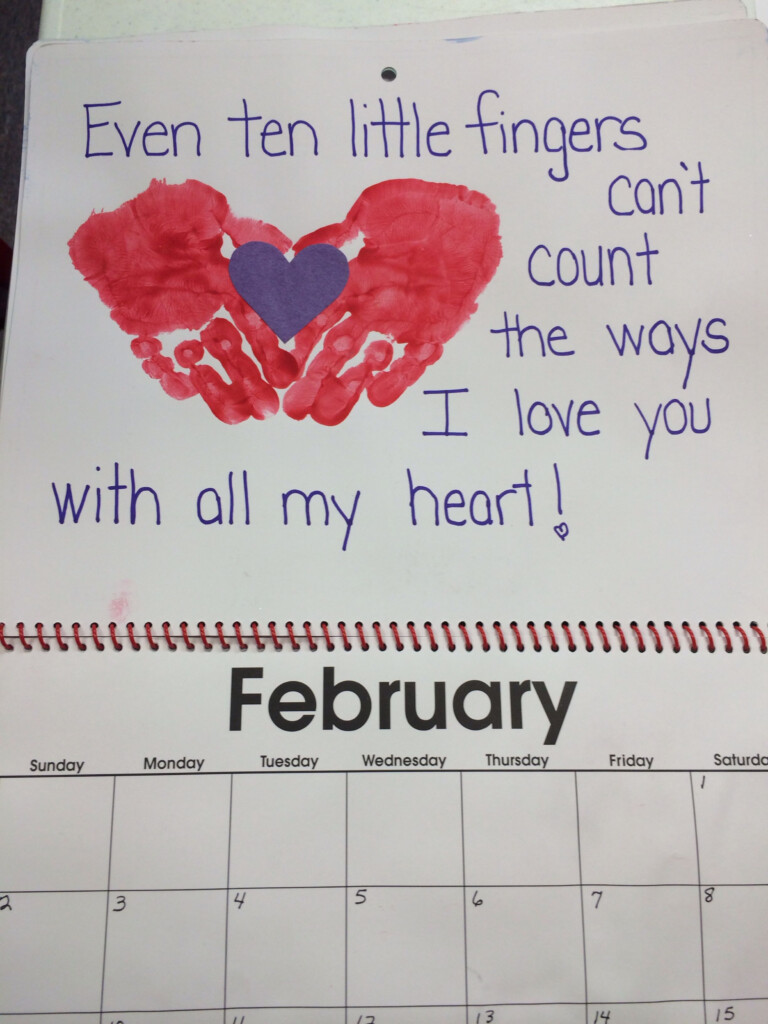 Even ten little fingers
can't
count
the ways
I love you
with all my heart!
February
Sunday Monday Tuesday Wednesday Thursday Friday Saturda
1
2 3 4 5 6 7 8
10 11 12 13 14 15